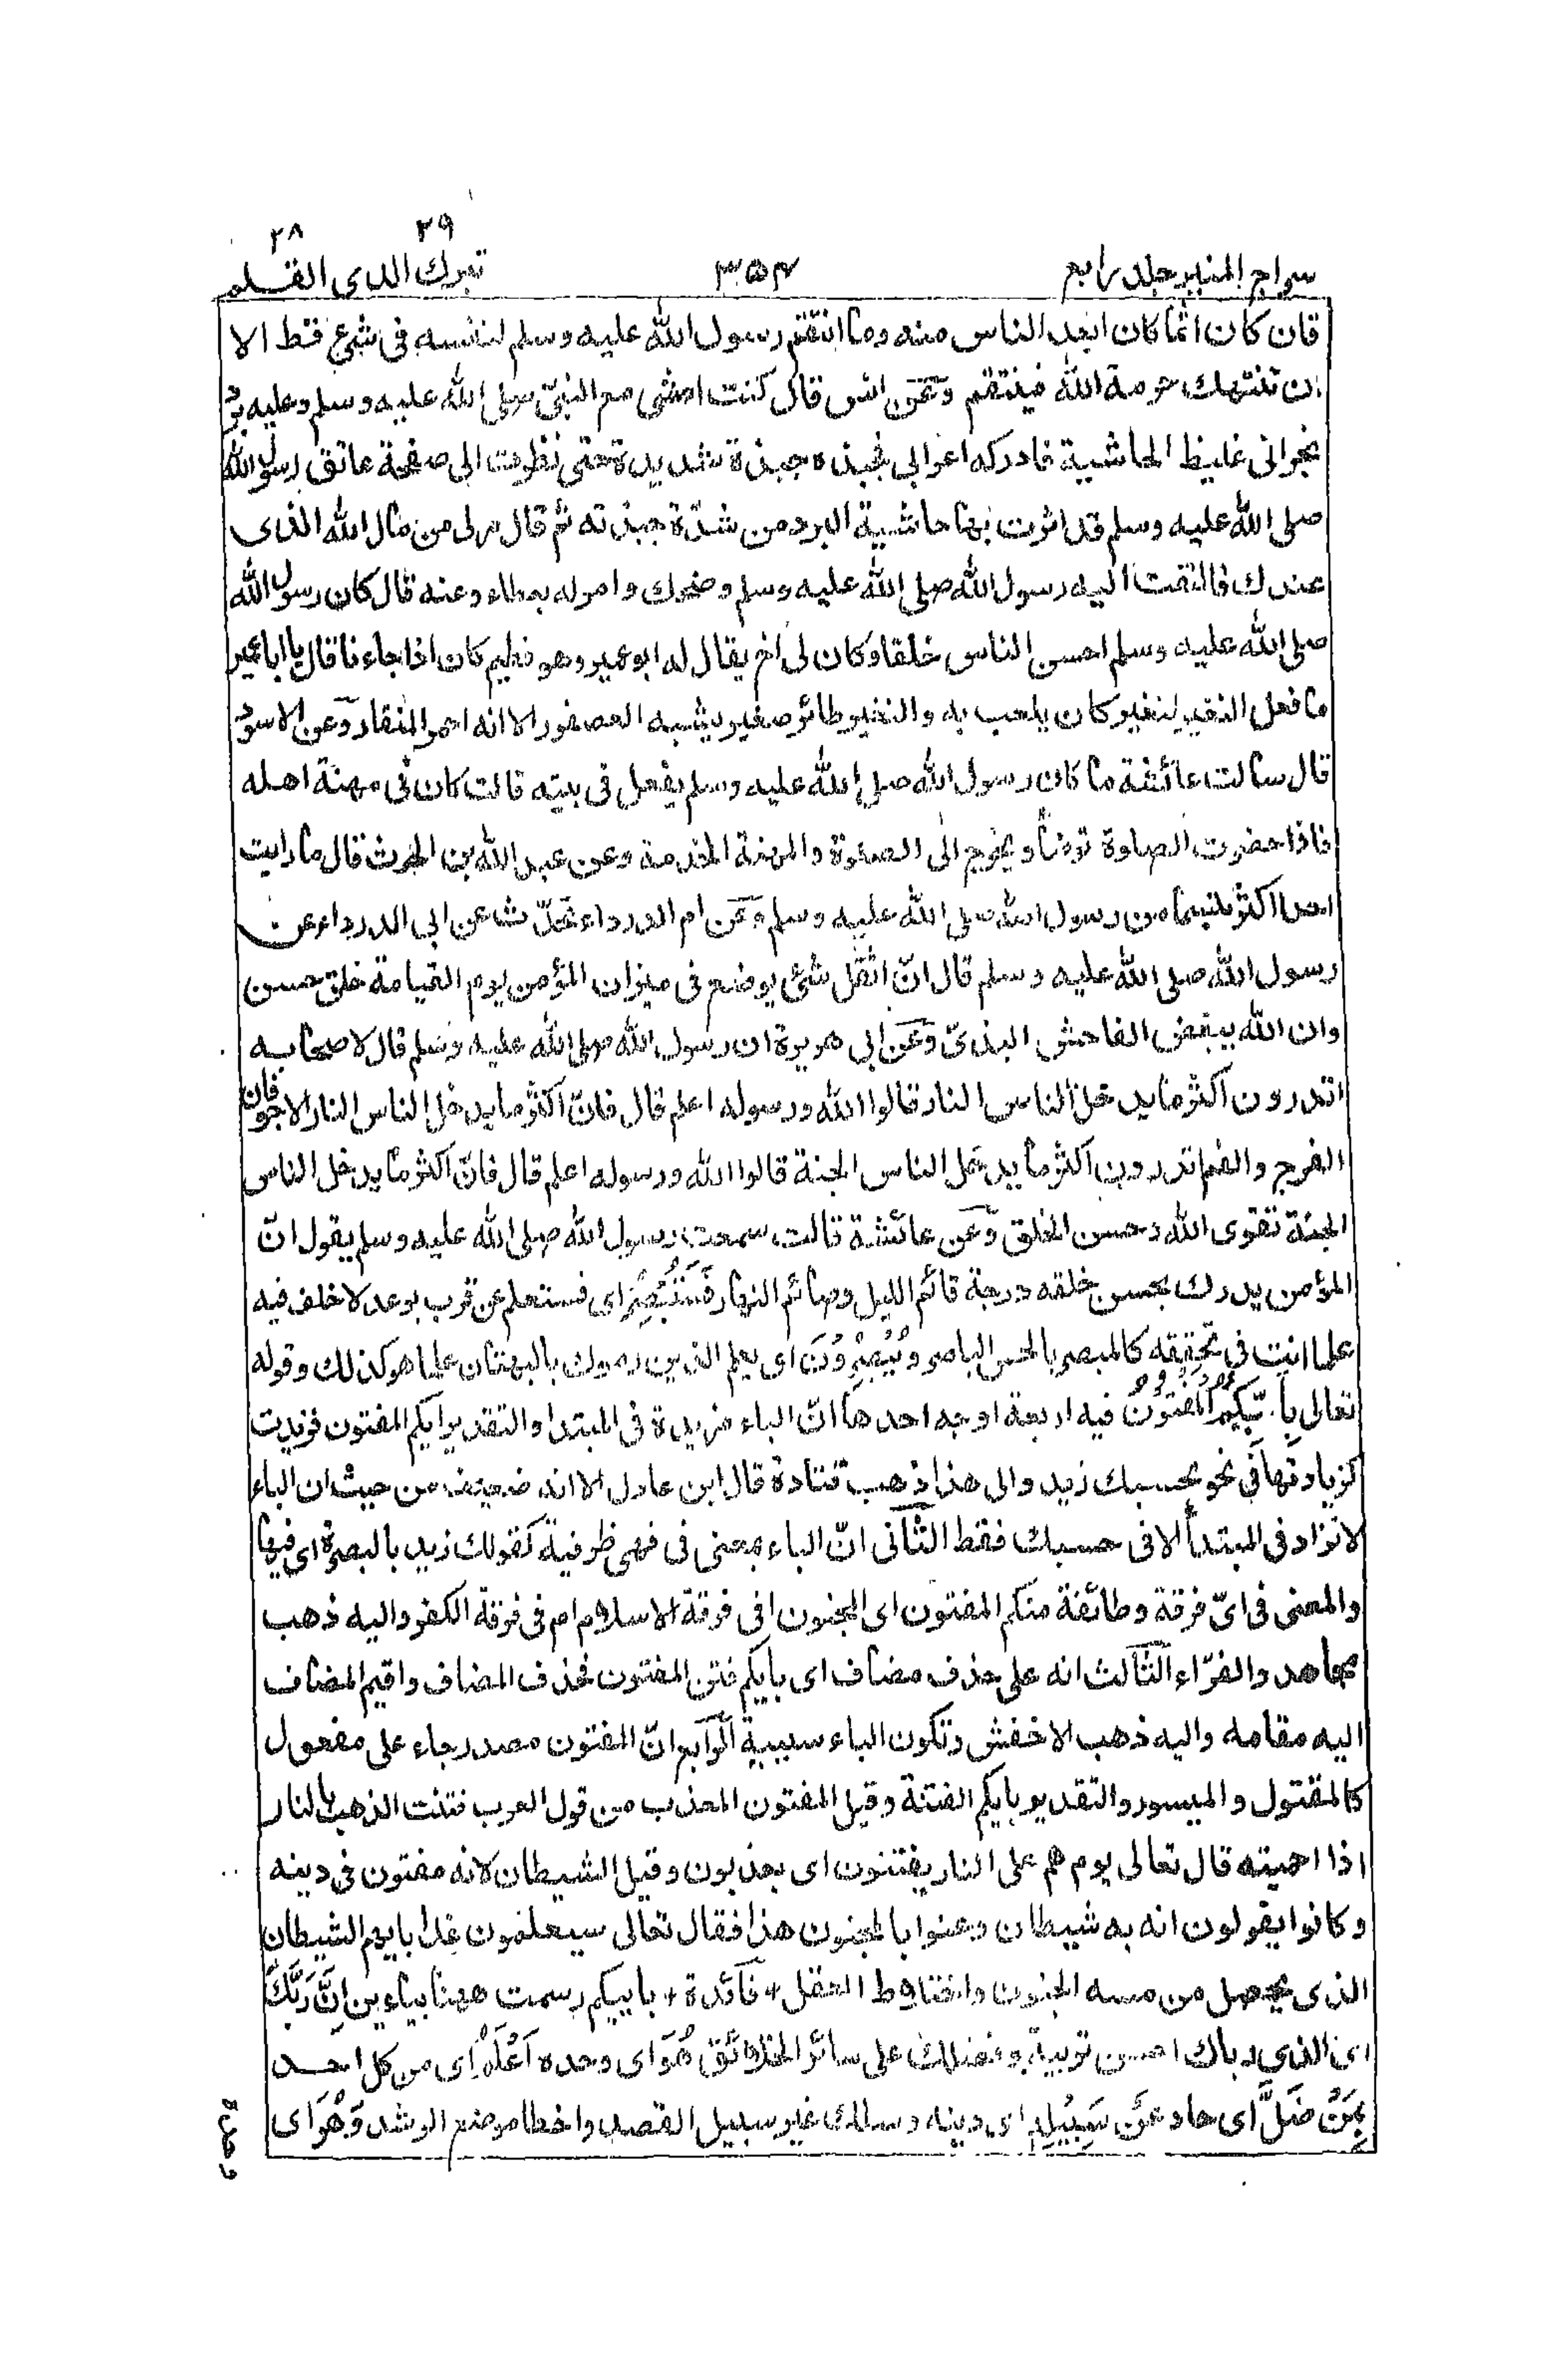 ٢٩ ٢٨
سراج المنير جلد رابع ٣٥٤ تبرك الذى القلم
فان كان اثما كان ابعد الناس منه وما انتقم رسول الله عليه وسلم لنفسه فى شئ قط الا
ان تنتهك حرمة الله فينتقم وعن انس قال كنت امشى مع النبىّ صلى الله عليه وسلم وعليه برد
نجرانى غليظ الحاشية فادركه اعرابى فجبذه جبذة شديدة حتى نظرت الى صفحة عاتق رسول الله
صلى الله عليه وسلم قد اثرت بها حاشية البرد من شدّة جبذته ثم قال مر لى من مال الله الذى
عندك فالتفت اليه رسول الله صلى الله عليه وسلم وضحك وامر له بعطاء وعنه قال كان رسول الله
صلى الله عليه وسلم احسن الناس خلقا وكان لى اخ يقال له ابو عمير وهو فطيم كان اذا جاءنا قال يا ابا عمير
ما فعل النغير لنغير كان يلعب به والنغير طائر صغير يشبه العصفور الا انه احمر المنقار وعن الاسود
قال سالت عائشة ما كان رسول الله صلى الله عليه وسلم يفعل فى بيته قالت كان فى مهنة اهله
فاذا حضرت الصلوة توضأ ويخرج الى الصلوة والمهنة الخدمة وعن عبد الله بن الحرث قال ما رايت
احدا اكثر تبسما من رسول الله صلى الله عليه وسلم وعن ام الدرداء تحدّث عن ابى الدرداء عن
رسول الله صلى الله عليه وسلم قال انّ اثقل شئ يوضع فى ميزان المؤمن يوم القيامة خلق حسن
وان الله يبغض الفاحش البذىّ وعن ابى هريرة ان رسول الله صلى الله عليه وسلم قال لاصحابه
اتدرون اكثر ما يدخل الناس النار قالوا الله ورسوله اعلم قال فانّ اكثر ما يدخل الناس النار الاجوفان
الفرج والفم اتدرون اكثر ما يدخل الناس الجنة قالوا الله ورسوله اعلم قال فانّ اكثر ما يدخل الناس
الجنة تقوى الله وحسن الخلق وعن عائشة قالت سمعت رسول الله صلى الله عليه وسلم يقول انّ
المؤمن يدرك بحسن خلقه درجة قائم الليل وصائم النهار فَسَتُبْصِرُ اى فستعلم عن قرب بوعد لا خلف فيه
علما انت فى تحققه كالمبصر بالحس الباصر وَيُبْصِرُونَ اى يعلم الذين رموك بالبهتان علما هو كذلك وقوله
تعالى بِأَييِّكُمُ الْمَفْتُوْنُ فيه اربعة اوجه احدها انّ الباء مزيدة فى المبتدا والتقدير ايكم المفتون فزيدت
كزيادتها فى نحو بحسبك زيد والى هذا ذهب قتادة قال ابن عادل الا انه ضعيف من حيث ان الباء
لا تزاد فى المبتدأ الا فى حسبك فقط الثّانى انّ الباء بمعنى فى فهى ظرفية كقولك زيد بالبصرة اى فيها
والمعنى فى اىّ فرقة وطائفة منكم المفتون اى المجنون افى فرقة الاسلام ام فى فرقة الكفر واليه ذهب
مجاهد والفرّاء الثّالث انه على حذف مضاف اى بايكم فتن المفتون فحذف المضاف واقيم المضاف
اليه مقامه واليه ذهب الاخفش وتكون الباء سببية الرّابع انّ المفتون مصدر جاء على مفعول
كالمقتول والميسور والتقدير بايكم الفتنة وقيل المفتون المعذب من قول العرب فتنت الذهب بالنار
اذا احميته قال تعالى يوم هم على النار يفتنون اى يعذبون وقيل الشيطان لانه مفتون فى دينه
وكانوا يقولون انه به شيطان وعنوا بالمجنون هذا فقال تعالى سيعلمون غدا بايهم الشيطان
الذى يحصل من مسه الجنون واختلاط العقل + فائدة + باييكم رسمت ههنا بياءين اِنَّ رَبَّكَ
اى الذى رباك احسن تربية وفضلك على سائر الخلائق هُوَ اى وحده اَعْلَمُ اى من كل احد
بِمَنْ ضَلَّ اى حاد عَنْ سَبِيْلِهٖ اى دينه وسلك غير سبيل القصد واخطا موضع الرشد وَهُوَ اى